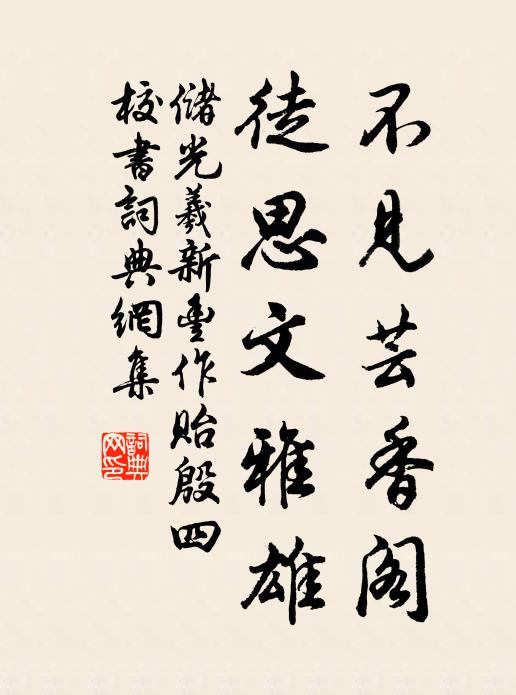 不見芸香閣
徒思文雅雄
儲光羲新豐作貽殷四
校書詞典網集
詞典网印